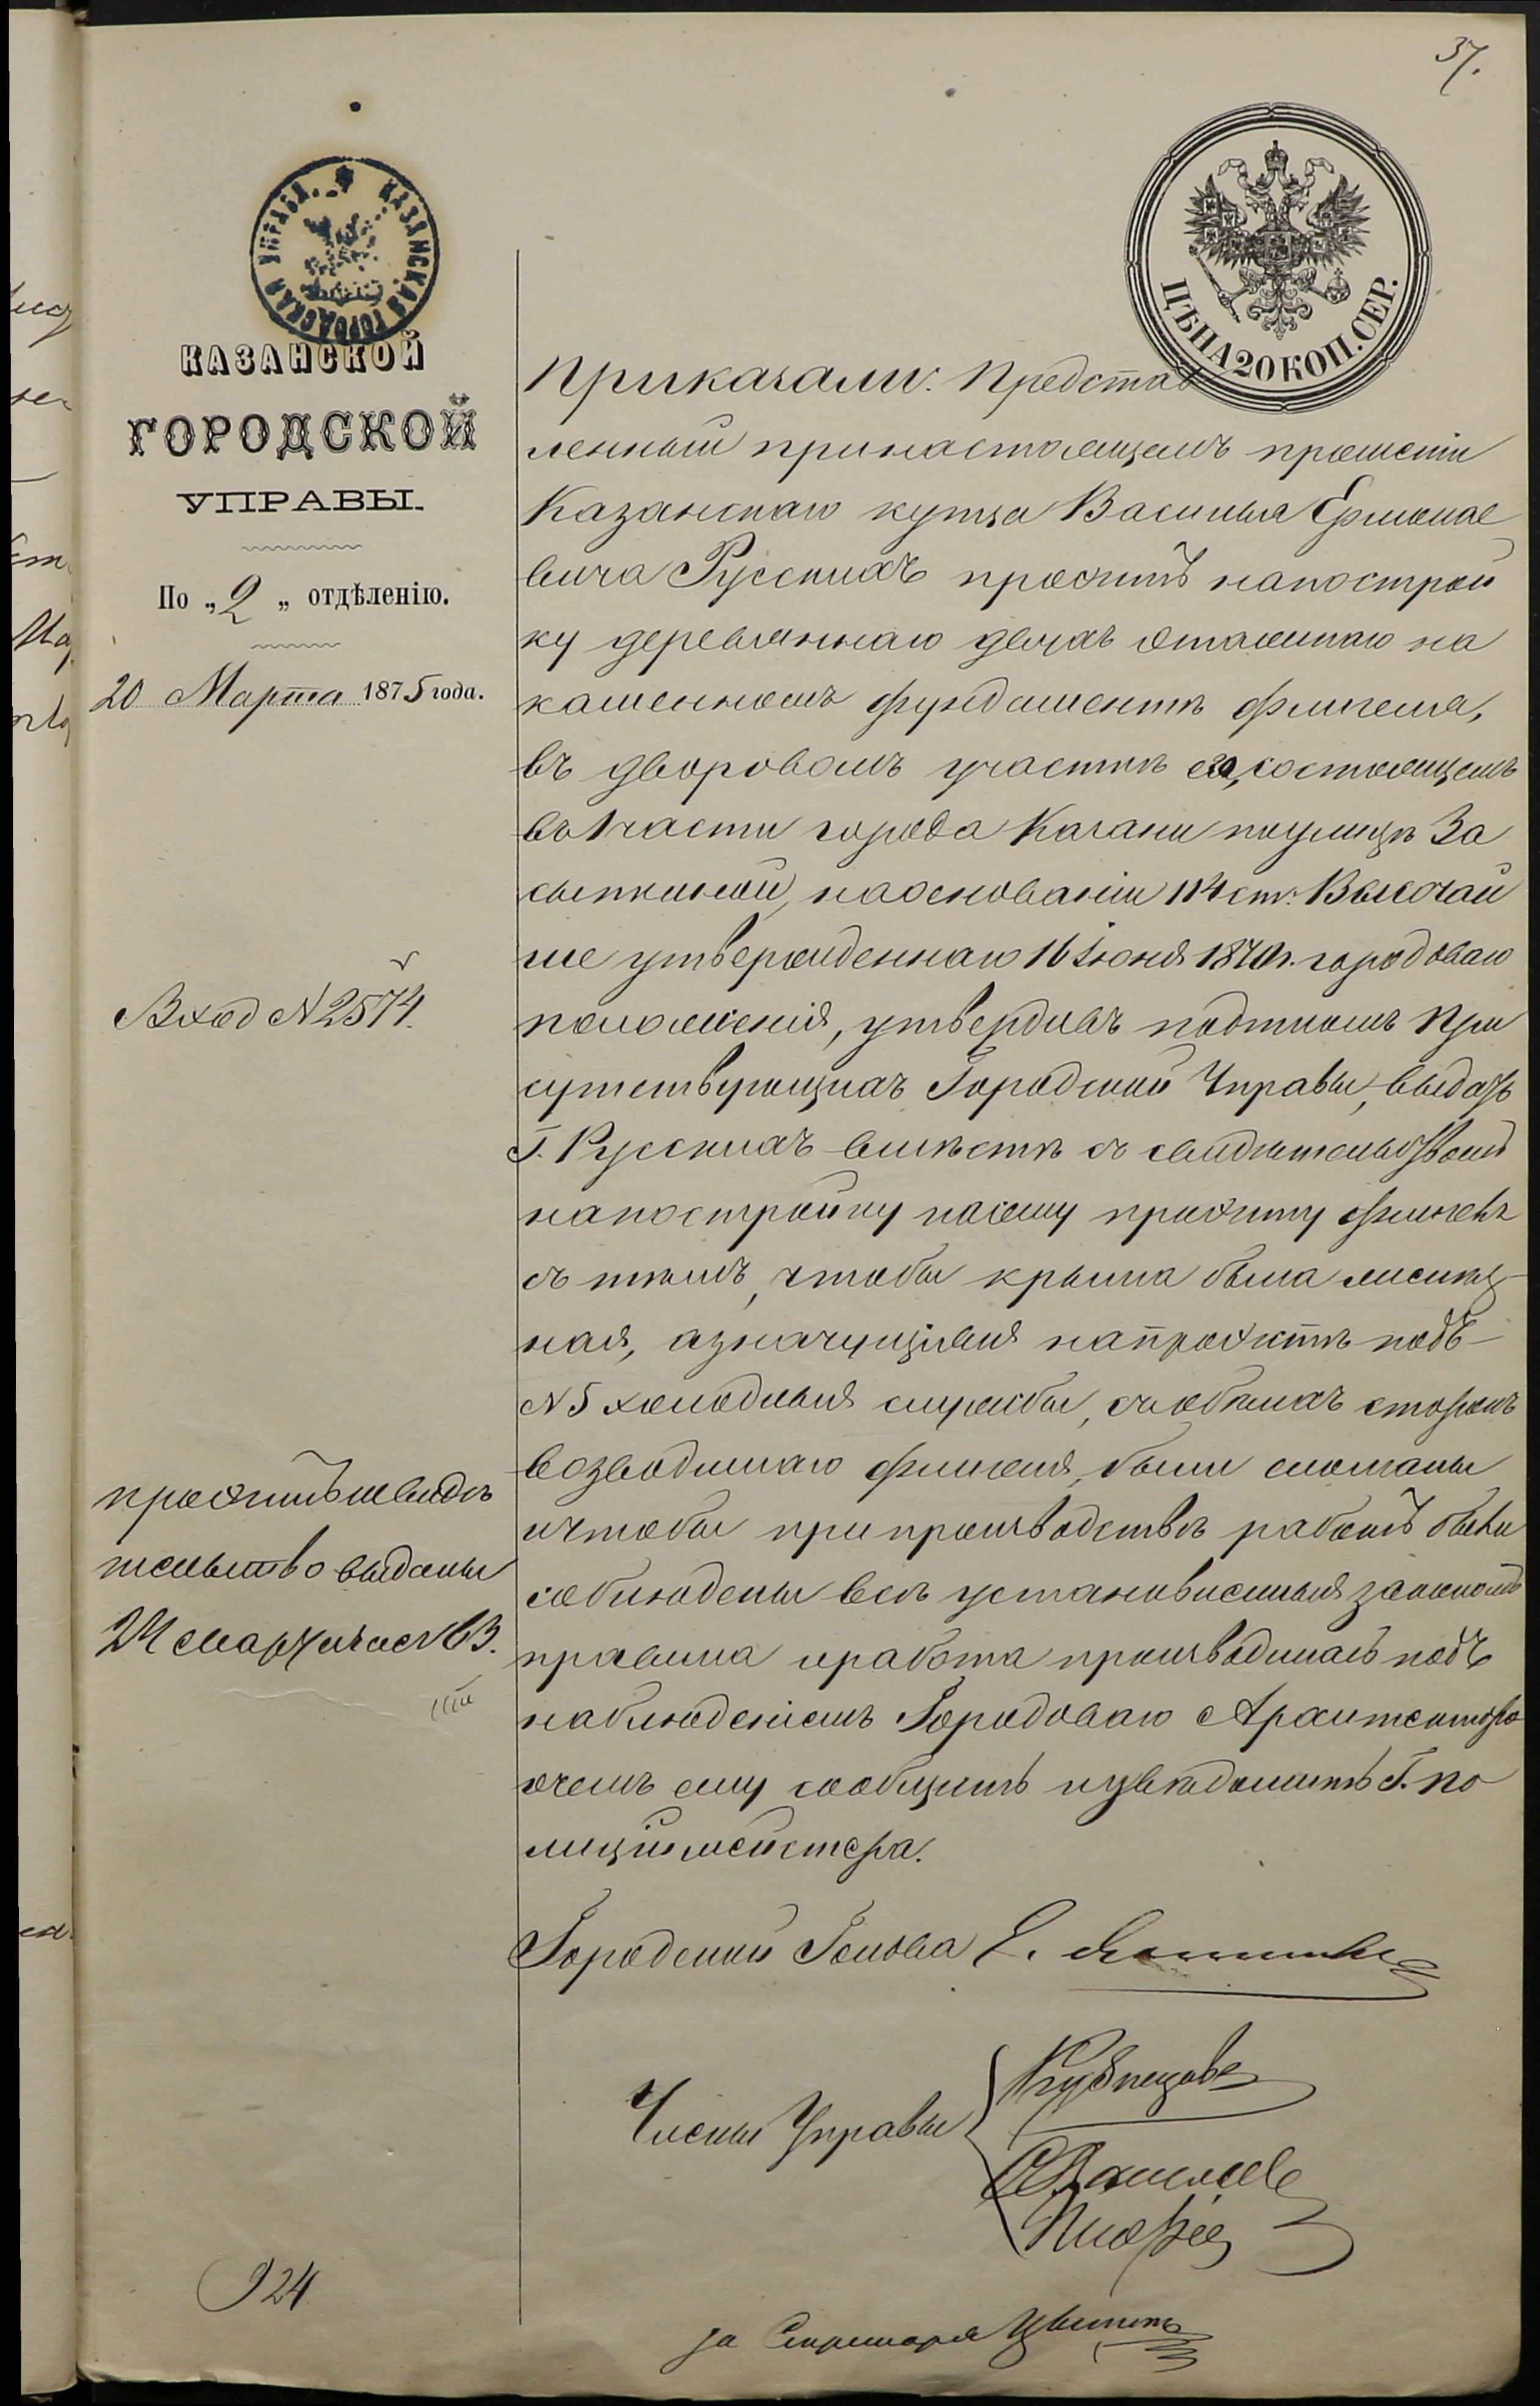 37.
КАЗАНСКАЯ ГОРОДСКАЯ УПРАВА.
ЦѢНА 20 КОП. СЕР.
КАЗАНСКОЙ
ГОРОДСКОЙ
УПРАВЫ.
По „2„ отдѣленію.
20 Марта 1875 года.
Вход N 2574.
проэктъ и свидѣ
тельство выданы
24 марта за N 63.
924
Приказали: Представ
ленный при настоящемъ прошеніи
Казанскаго купца Василья Ермолае
вича Русскихъ проэктъ на построй
ку деревяннаго двухъ этажнаго на
каменномъ фундаментѣ флигеля,
въ дворовомъ участкѣ его, состоящемъ
въ 1 части города Казани по улицѣ За
сыпкиной, на основаніи 114 ст. Высочай
ше утвержденнаго 16 Іюня 1870 г. городоваго
положенія, утвердивъ подписомъ При
сутствующихъ Городской Управы, выдать
Г. Русскихъ вмѣстѣ съ свидѣтельствомъ
на постройку по сему проэкту флигеля
съ тѣмъ, чтобы крыша была желѣз
ная, а значущіяся на проэктѣ подъ
N 5 холодныя службы, съ обѣихъ сторонъ
возводимаго флигеля, были сломаны
и чтобы при производствѣ работъ были
соблюдены всѣ установленныя закономъ
правила и работа производилась подъ
наблюденіемъ Городоваго Архитектора
о чемъ ему сообщить и увѣдомить Г. По
лиціймейстера.
Городской Голова Е.
Члены Управы
Кузнецовъ
за Секретаря